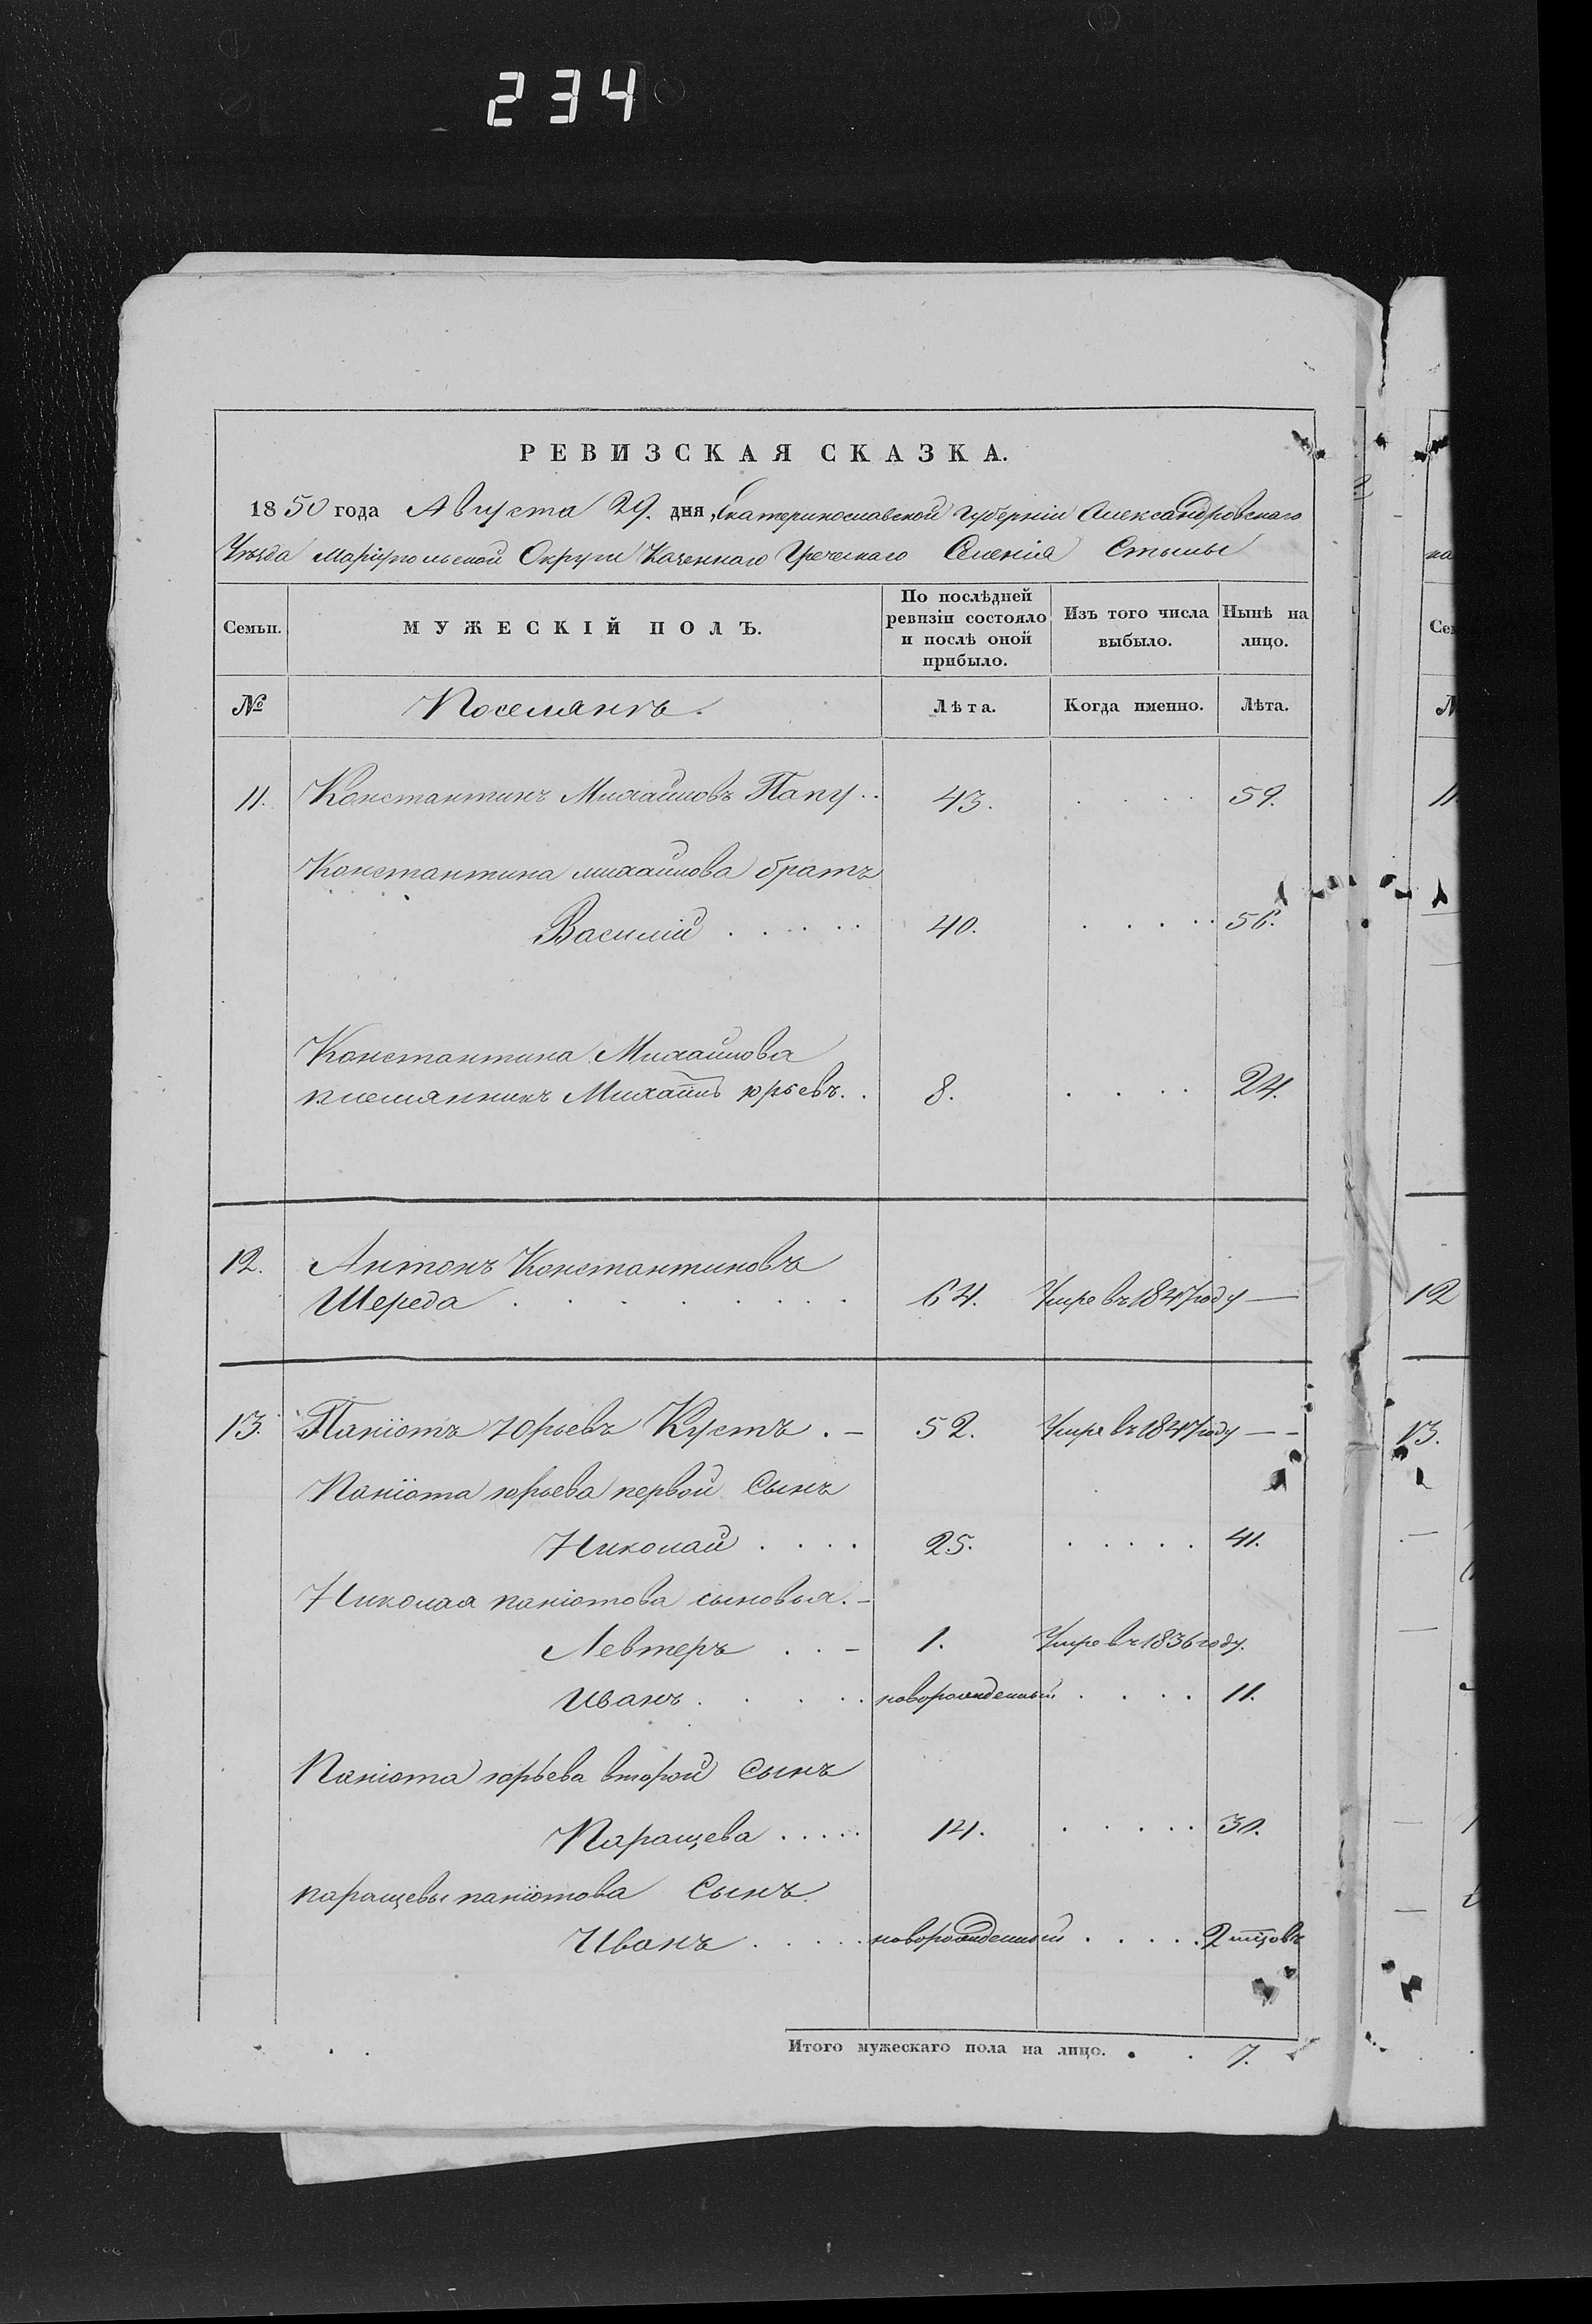 234
РЕВИЗСКАЯ СКАЗКА.
1850 года Августа 29. дня, Екатеринославской Губерніи Александровскаго
Уѣзда Маріупольской Округи Казеннаго Греческаго Селенія Стылы
Семьи. МУЖЕСКІЙ ПОЛЪ. По послѣдней ревизіи состояло и послѣ оной прибыло. Изъ того числа выбыло. Нынѣ на лицо.
№ Поселянъ. Лѣта. Когда именно. Лѣта.
11. Константинъ Михайловъ Папу.. 43. 59.
Константина михайлова братъ
Василій 40. 56.
Константина Михайлова
племянникъ Михаилъ юрьевъ. 8. 24.
12. Антонъ Константиновъ
Шереда 64. Умре въ 1847 году —
13. Паніотъ Юрьевъ Кустъ. — 52. Умре въ 1847 году — -
Паніота юрьева первой Сынъ
Николай 25. 41.
Николая паніотова сыновья. -
Левтеръ - 1. Умре въ 1836 году.
Иванъ новорожденный 11.
Паніота юрьева второй Сынъ
Паращева 14. 30.
паращевы паніотова Сынъ
Иванъ новорожденный 2 мцовъ
Итого мужескаго пола на лицо. 7.
на
Сем
11
12
13.